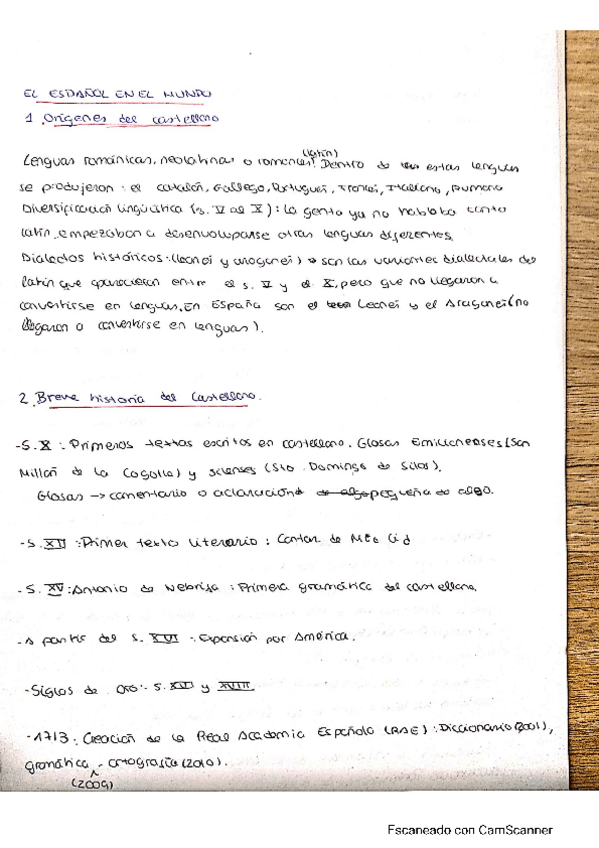 EL ESPAÑOL EN EL MUNDO
1. Orígenes del castellano
(latín)
Lenguas románicas, neolatinas o romances. Dentro de estas lenguas
se produjeron: el catalán, Gallego, Portugués, Francés, Italiano, Rumano
Diversificación lingüística (s. V al X): la gente ya no hablaba tanto
latín, empezaban a desenvoluparse otras lenguas diferentes.
Dialectos históricos: (leonés y aragonés) → son las variantes dialectales del
latín que aparecieron entre el s. V y el X, pero que no llegaron a
convertirse en lenguas. En España son el Leonés y el Aragonés (no
llegaron a convertirse en lenguas).
2. Breve historia del Castellano.
-S. X: Primeros textos escritos en castellano. Glosas Emilianenses (San
Millán de la Cogolla) y silenses (Sto. Domingo de Silos).
Glosas → comentario o aclaración pequeña de algo.
-S. XII: Primer texto literario: Cantar de Mío Cid
-S. XV: Antonio de Nebrija: Primera gramática del castellano.
-A partir del s. XVI: Expansión por América.
-Siglos de Oro: S. XVI y XVII
-1713: Creación de la Real Academia Española (RAE): Diccionario (2001),
gramática - ortografía (2010).
(2009)
Escaneado con CamScanner